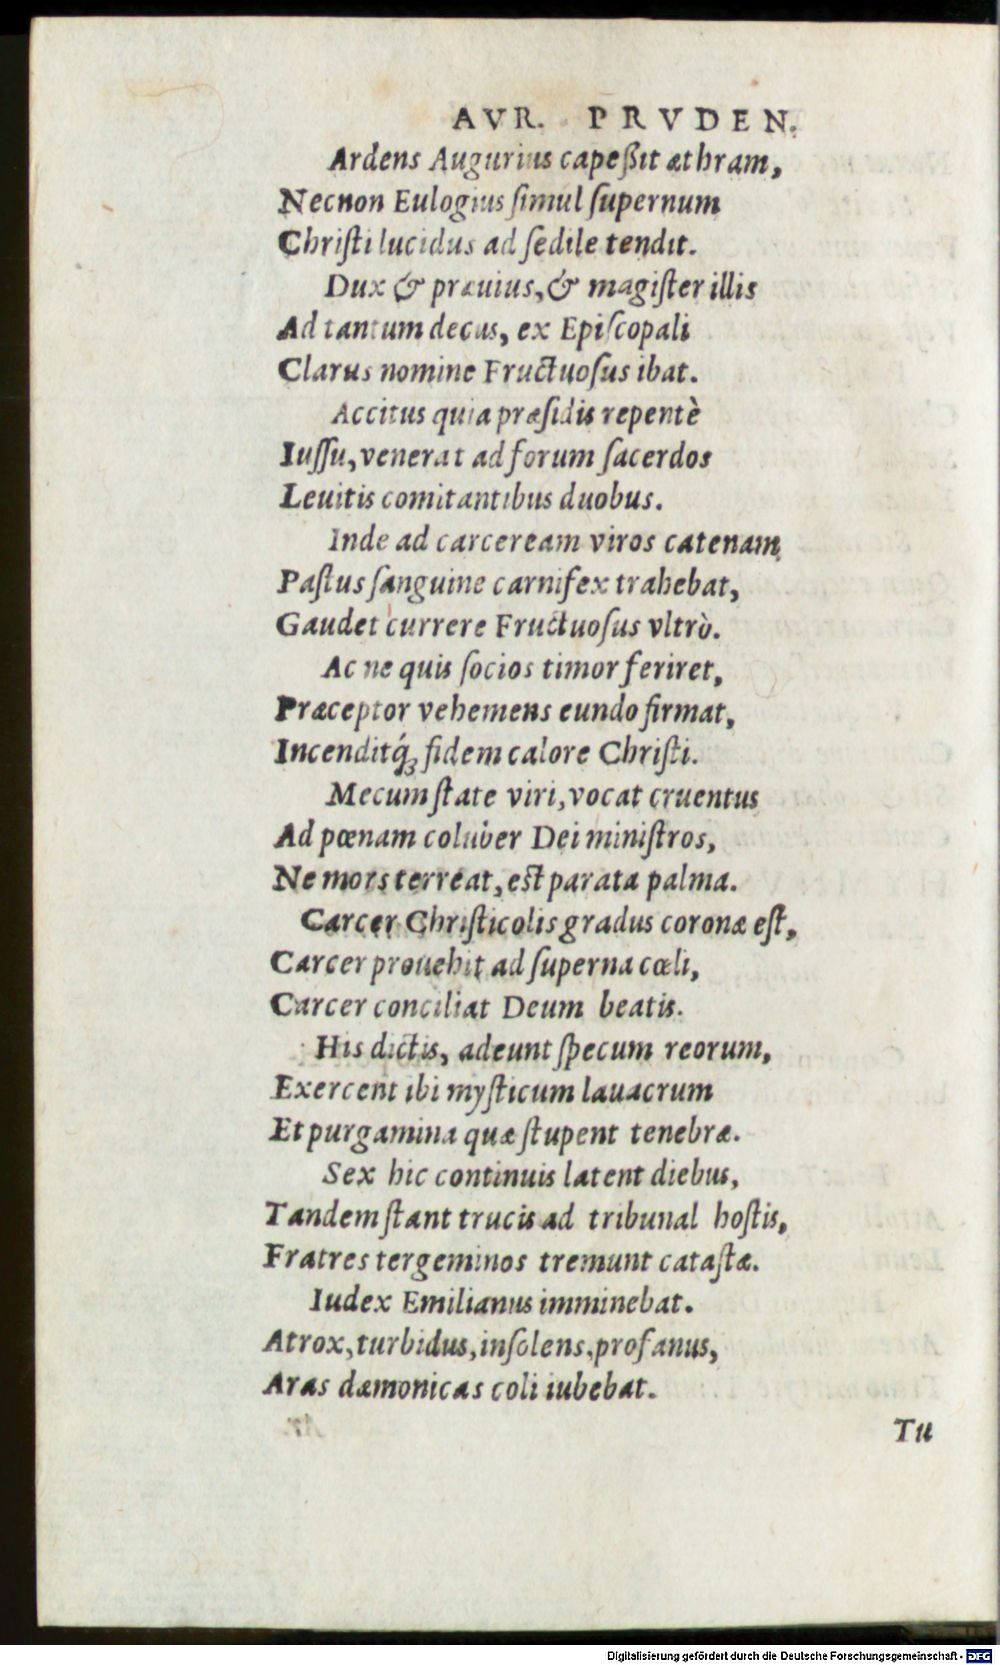 AVR. PRVDEN.
Ardens Augurius capeßit æthram,
Necnon Eulogius ſimul ſupernum
Chriſti lucidus ad ſedile tendit.
Dux & præuius, & magiſter illis
Ad tantum decus, ex Epiſcopali
Clarus nomine Fructuoſus ibat.
Accitus quia præſidis repentè
Iuſſu, venerat ad forum ſacerdos
Leuitis comitantibus duobus.
Inde ad carceream viros catenam
Paſtus ſanguine carnifex trahebat,
Gaudet currere Fructuoſus vltrò.
Ac ne quis ſocios timor feriret,
Præceptor vehemens eundo firmat,
Incenditq́ꝫ fidem calore Chriſti.
Mecum ſtate viri, vocat cruentus
Ad pœnam coluber Dei miniſtros,
Ne mors terreat, est parata palma.
Carcer Chriſticolis gradus coronæ eſt,
Carcer prouehit ad ſuperna cœli,
Carcer conciliat Deum beatis.
His dictis, adeunt ſpecum reorum,
Exercent ibi myſticum lauacrum
Et purgamina quæ ſtupent tenebræ.
Sex hic continuis latent diebus,
Tandem ſtant trucis ad tribunal hoſtis,
Fratres tergeminos tremunt cataſtæ.
Iudex Emilianus imminebat.
Atrox, turbidus, inſolens, profanus,
Aras dæmonicas coli iubebat.
Tu
Digitalisierung gefördert durch die Deutsche Forschungsgemeinschaft - DFG